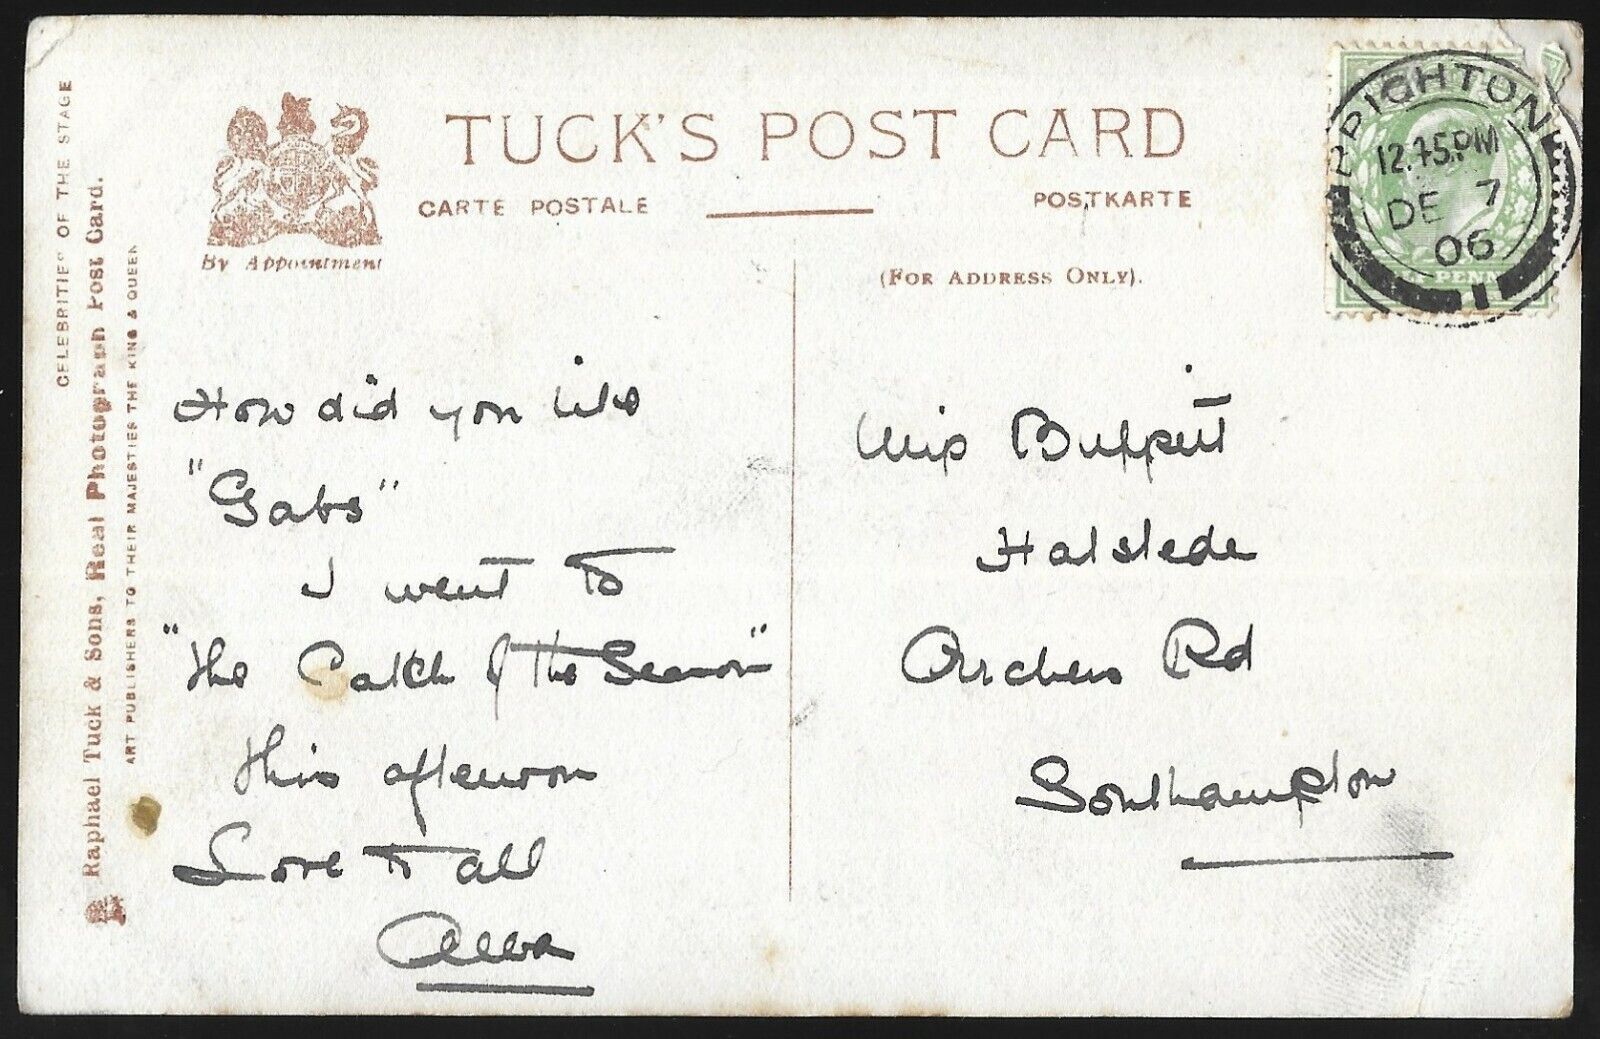 CELEBRITIES OF THE STAGE
Raphael Tuck & Sons, Real Photograph Post Card.
ART PUBLISHERS TO THEIR MAJESTIES THE KING & QUEEN
By Appointment
TUCK'S POST CARD
CARTE POSTALE
POSTKARTE
(FOR ADDRESS ONLY).
BRIGHTON
12.45PM
DE 7
06
1
How did you like
"Gabs"
I went to
"The Catch of the Season"
this afternoon
Love to all
Miss Buffett
Halstede
Archers Rd
Southampton